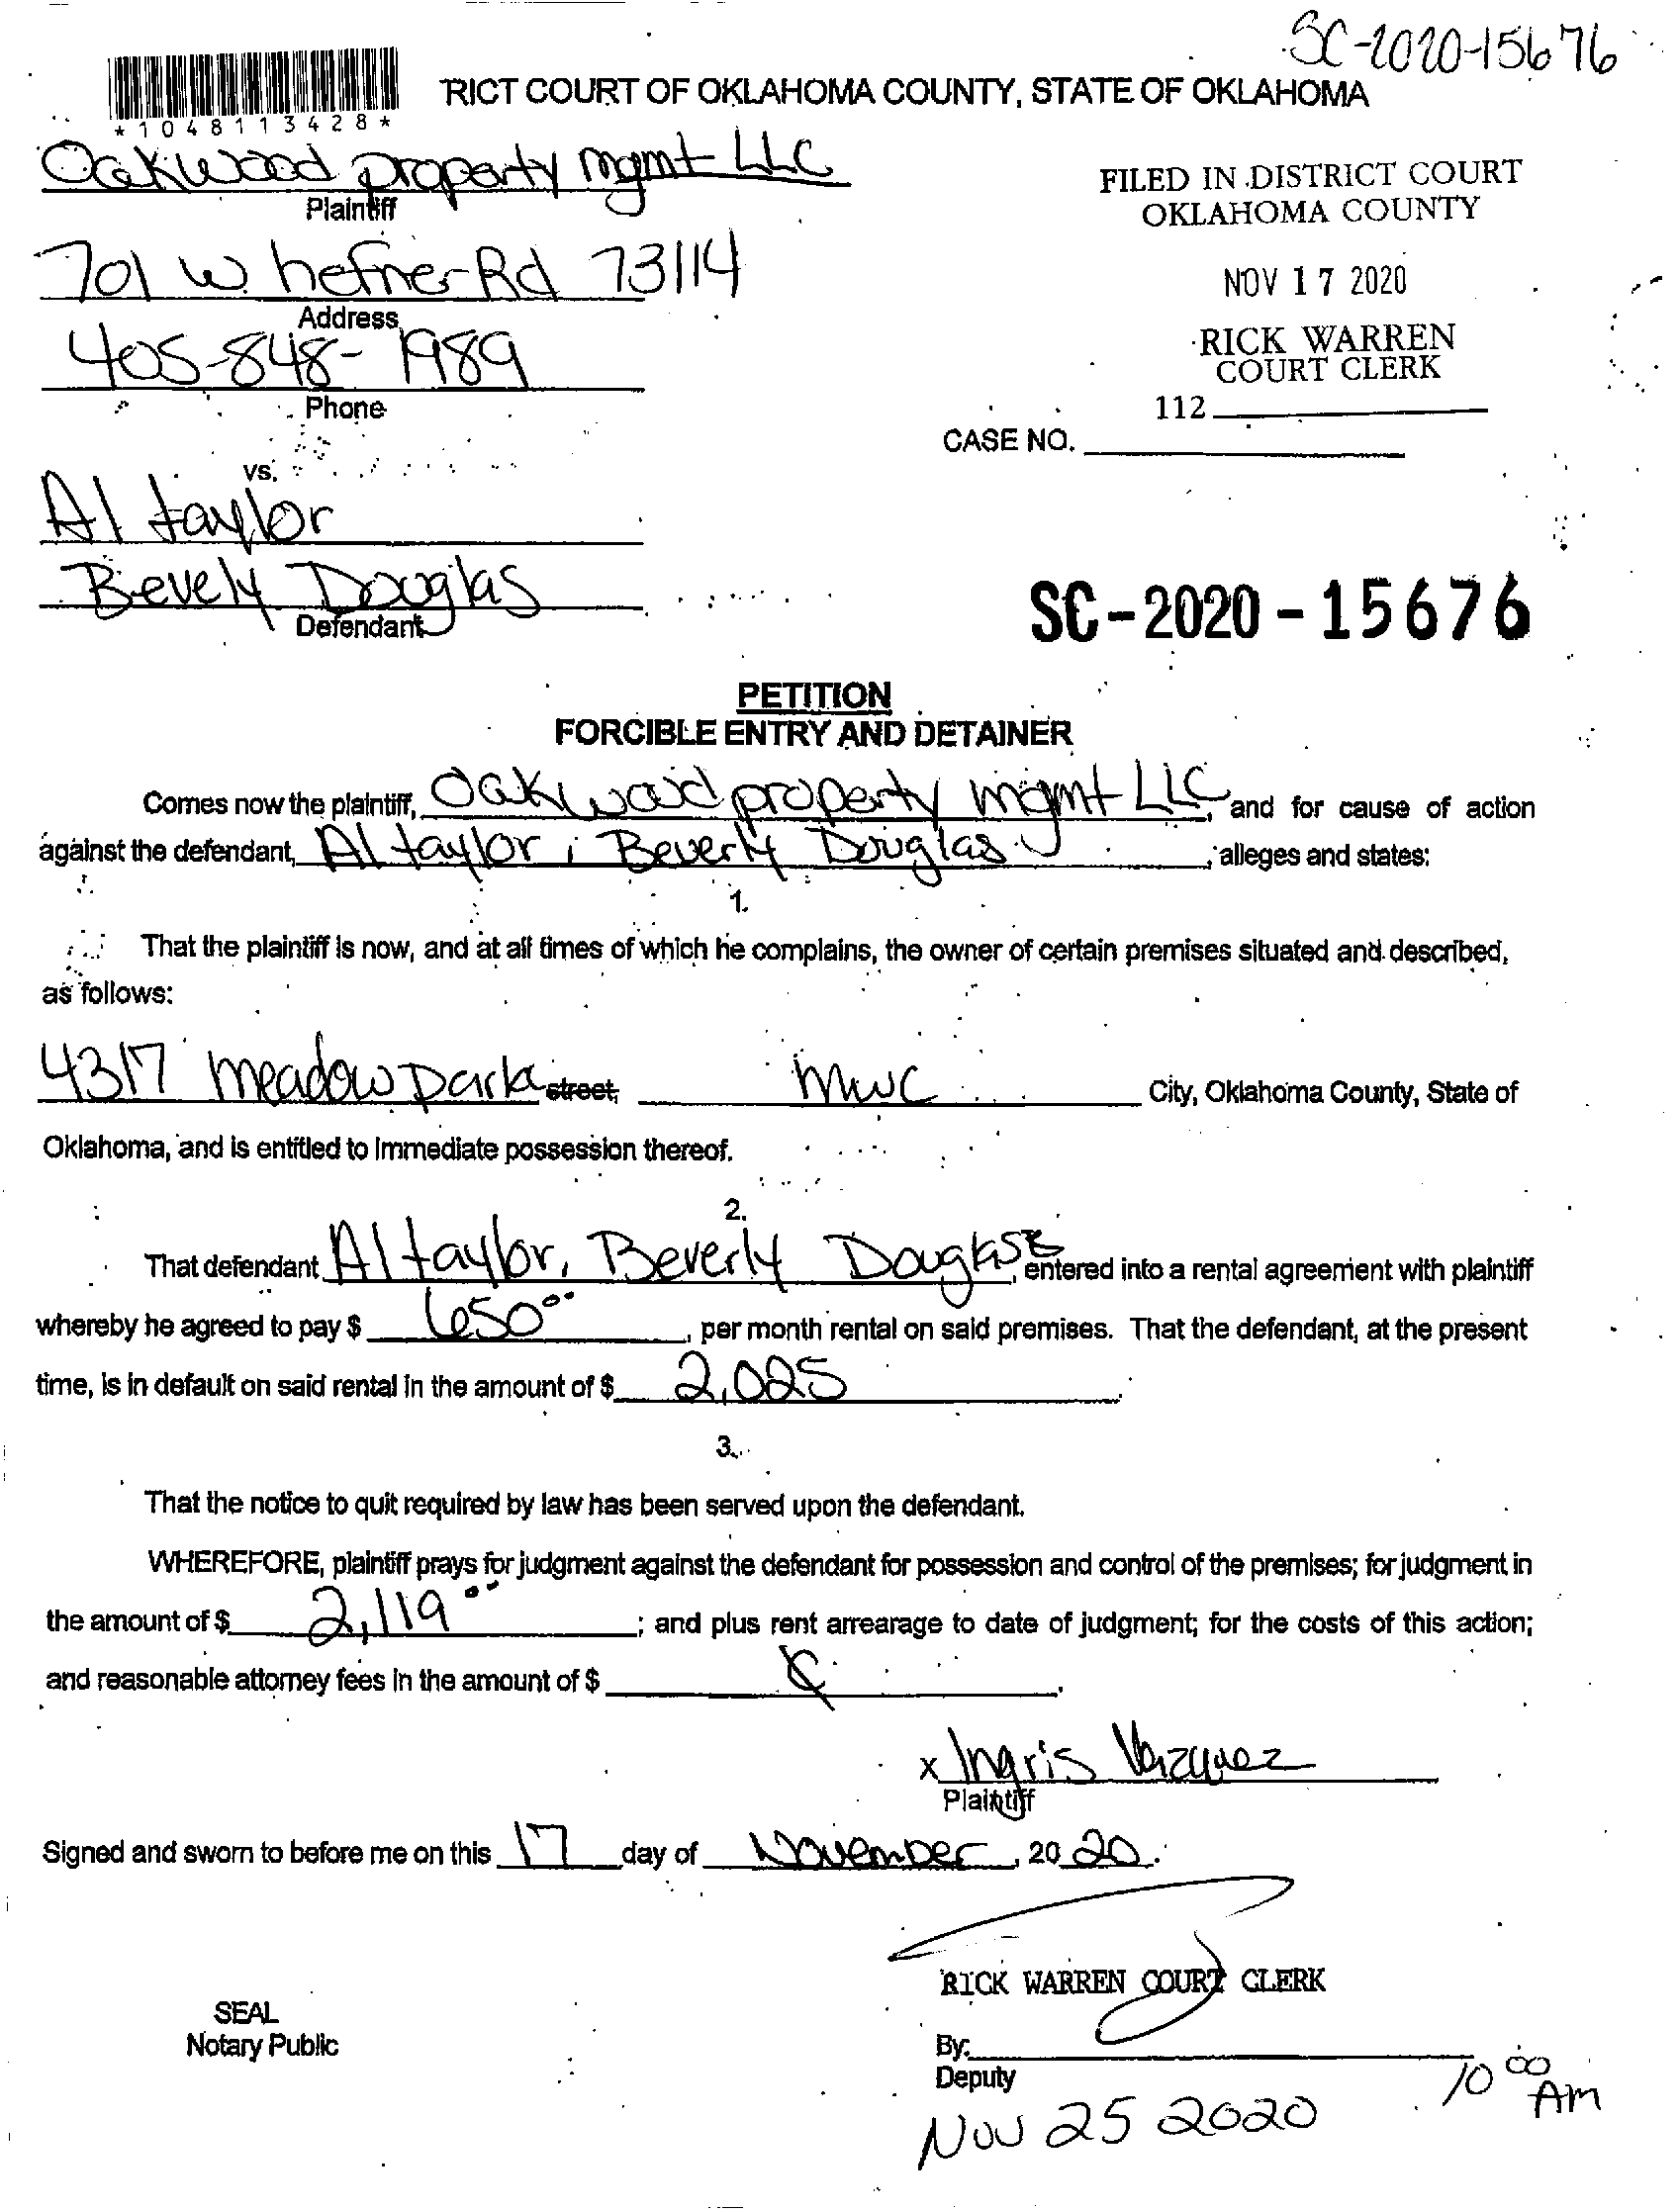 SC-2020-15676
RICT COURT OF OKLAHOMA COUNTY, STATE OF OKLAHOMA
*1048113428*
Oakwood property mgmt LLC
Plaintiff
FILED IN DISTRICT COURT
OKLAHOMA COUNTY
701 W. hefner Rd 73114
Address
NOV 17 2020
405-848-1989
Phone
RICK WARREN
COURT CLERK
112
CASE NO.
vs.
Al taylor
Bevely Douglas
Defendant
SC-2020-15676
PETITION
FORCIBLE ENTRY AND DETAINER
Comes now the plaintiff, Oakwood property mgmt LLC, and for cause of action
against the defendant, Al taylor ; Beverly Douglas, alleges and states:
1.
That the plaintiff is now, and at all times of which he complains, the owner of certain premises situated and described,
as follows:
4317 meadow park street, MWC City, Oklahoma County, State of
Oklahoma, and is entitled to immediate possession thereof.
2.
That defendant Al taylor, Beverly Douglas, entered into a rental agreement with plaintiff
whereby he agreed to pay $ 650.00, per month rental on said premises. That the defendant, at the present
time, is in default on said rental in the amount of $ 2,025.
3.
That the notice to quit required by law has been served upon the defendant.
WHEREFORE, plaintiff prays for judgment against the defendant for possession and control of the premises; for judgment in
the amount of $ 2,119.00; and plus rent arrearage to date of judgment; for the costs of this action;
and reasonable attorney fees in the amount of $
x Ingris Vazquez
Plaintiff
Signed and sworn to before me on this 17 day of November, 20 20.
RICK WARREN COURT CLERK
SEAL
Notary Public
By:
Deputy
10 00 AM
NOV 25 2020